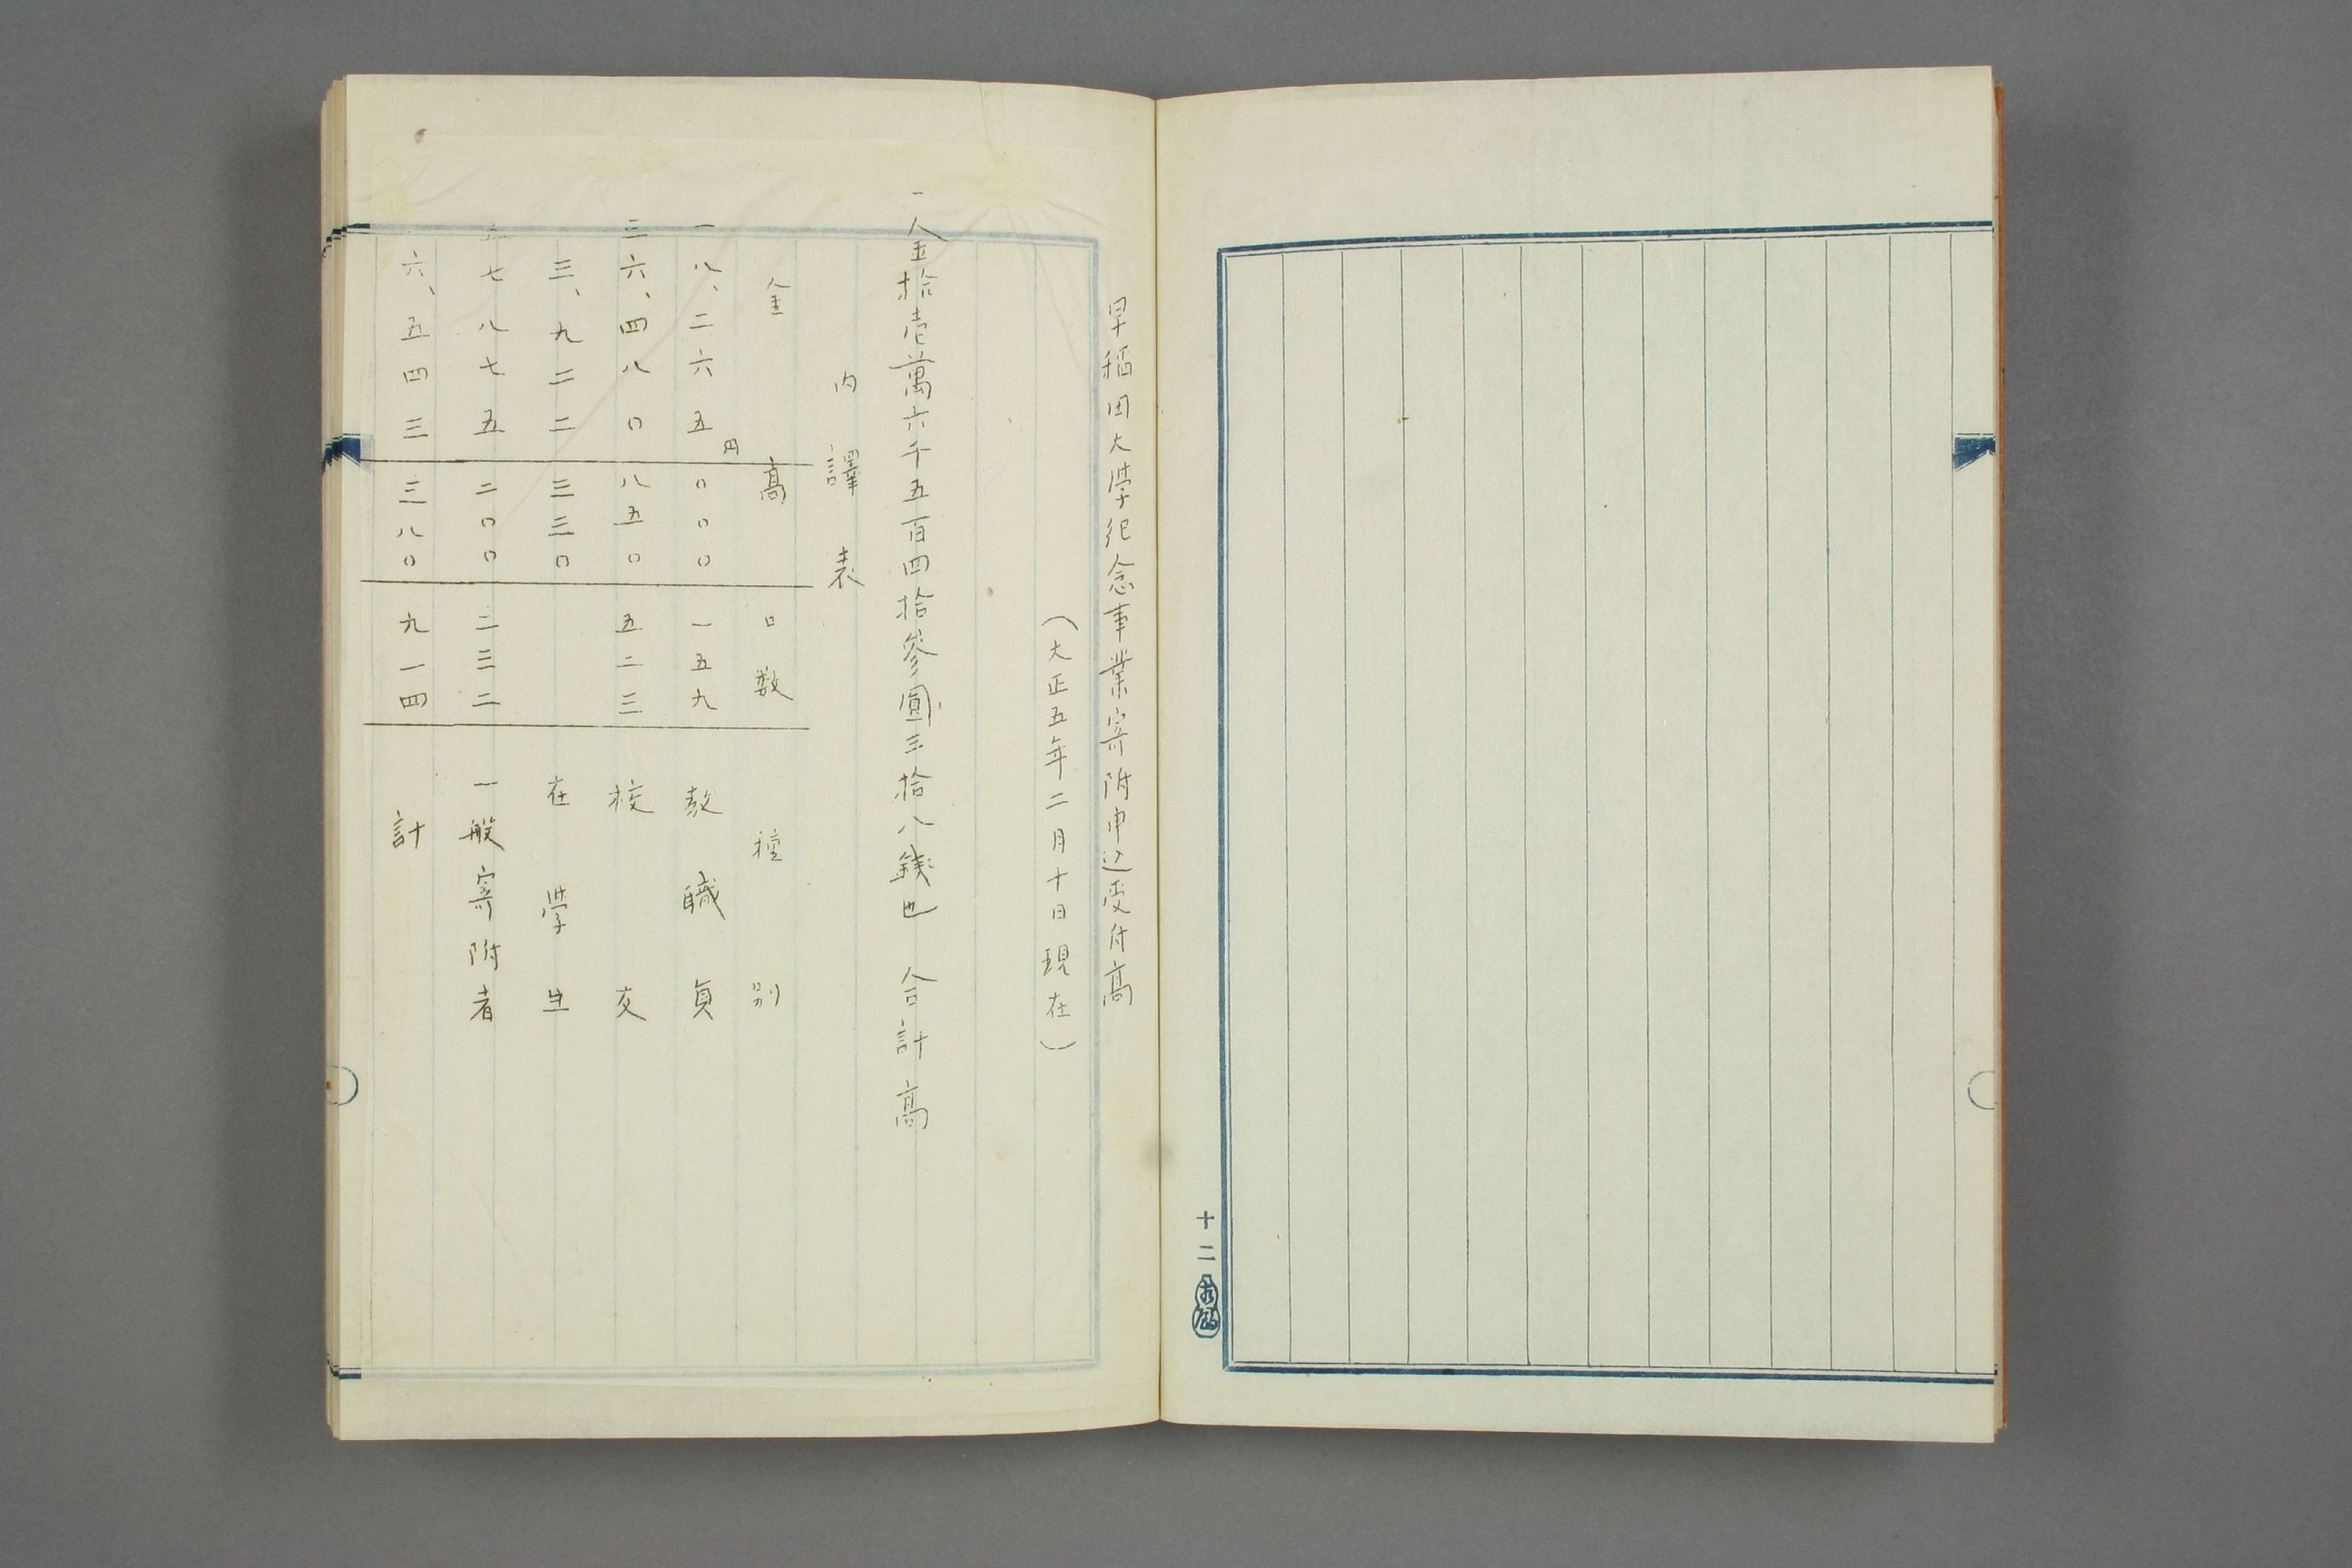 十二
早稲田大學紀念事業寄附申込受付高
(大正五年二月十日現在)
一金拾壱萬六千五百四拾參圓三拾八錢也 合計高
内譯表
金高 口数 種別
円
一八、二六五 〇〇〇 一五九 教職員
三六、四八〇 八五〇 五二三 校友
三、九二二 三三〇 在學生
五七八七五 二〇〇 二三二 一般寄附者
六、五四三 三八〇 九一四 計